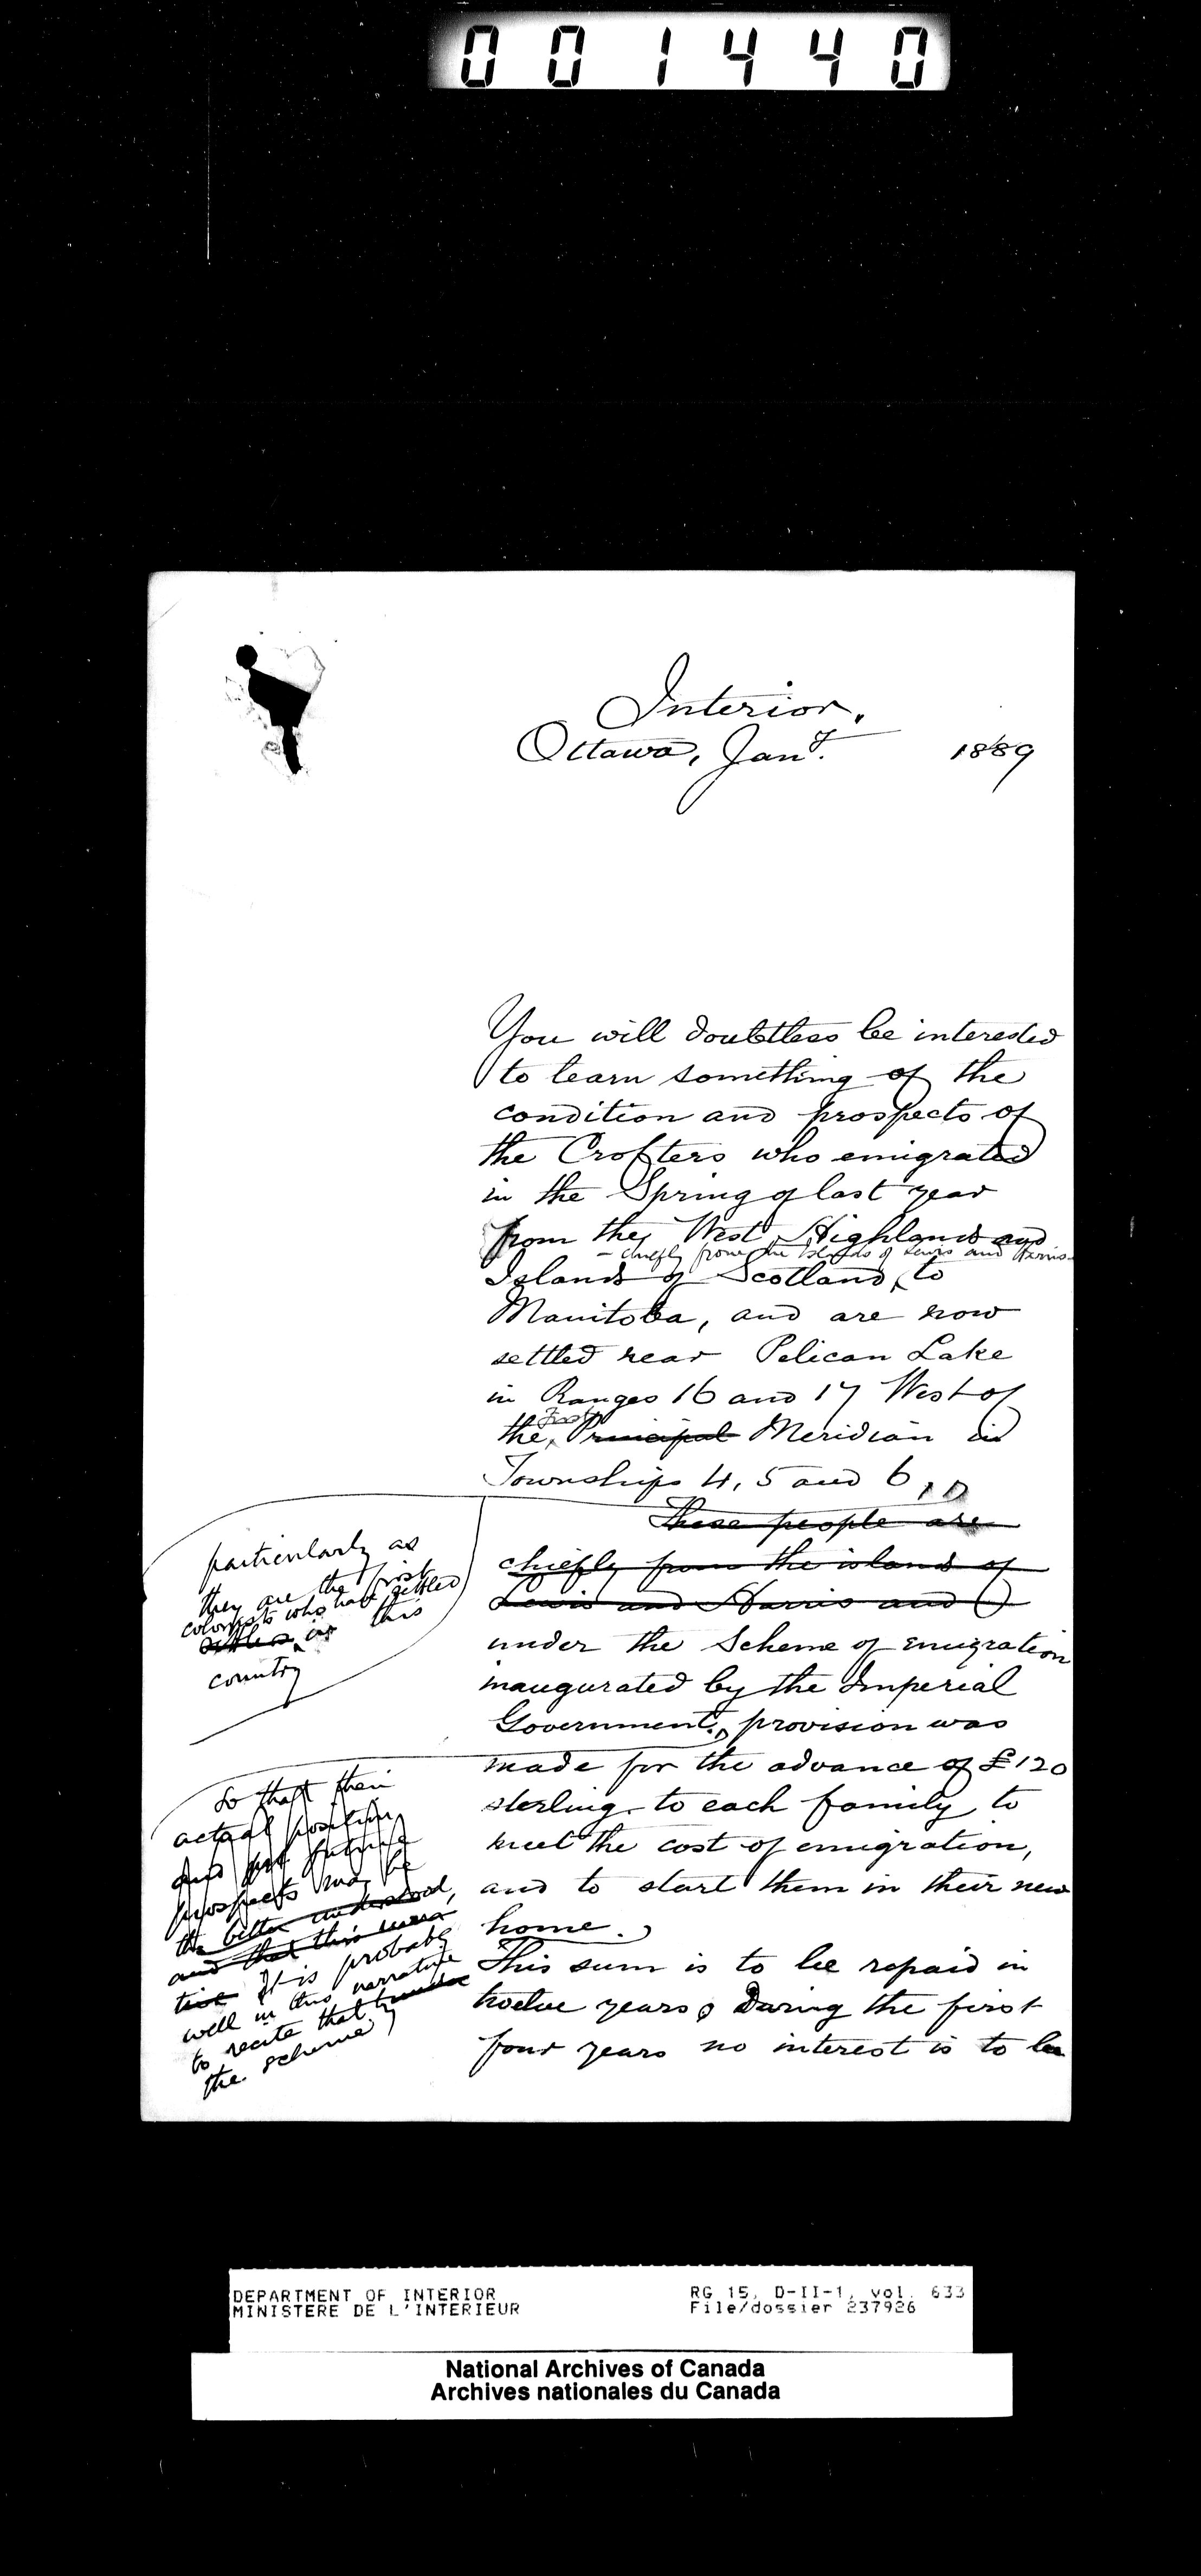 001440
Interior,
Ottawa, Jany. 1889
You will doubtless be interested
to learn something of the
condition and prospects of
the Crofters who emigrated
in the Spring of last year
from the West Highlands and
- chiefly from the Islands of Lewis and Harris -
Islands of Scotland, to
Manitoba, and are now
settled near Pelican Lake
in Ranges 16 and 17 West of
First
the Principal Meridian in
Townships 4, 5 and 6,
These people are
chiefly from the island of
Lewis and Harris and
particularly as
they are the first
colonists who have settled
settlers in this
country
under the Scheme of emigration
inaugurated by the Imperial
Government, provision was
made for the advance of £120
sterling to each family to
meet the cost of emigration,
and to start them in their new
home.
So that their
actual position
and future
prospects may be
the better understood,
and that this
It is probably
well in this narrative
to recite that under
the scheme
This sum is to be repaid in
twelve years, During the first
four years no interest is to be
DEPARTMENT OF INTERIOR
MINISTERE DE L'INTERIEUR
RG 15, D-II-1, vol. 633
File/dossier 237926
National Archives of Canada
Archives nationales du Canada